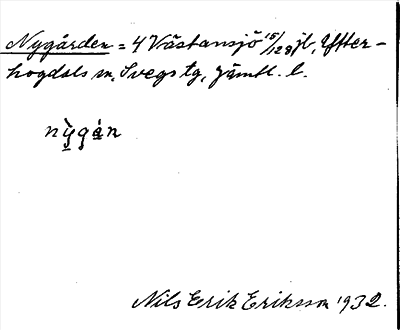 Nygården = 4 Västansjö 15/128 jb, Ytter-
hogdals sn, Svegs tg, Jämtl. l.
nỳ̠gá̠n
Nils Erik Eriksson 1932.